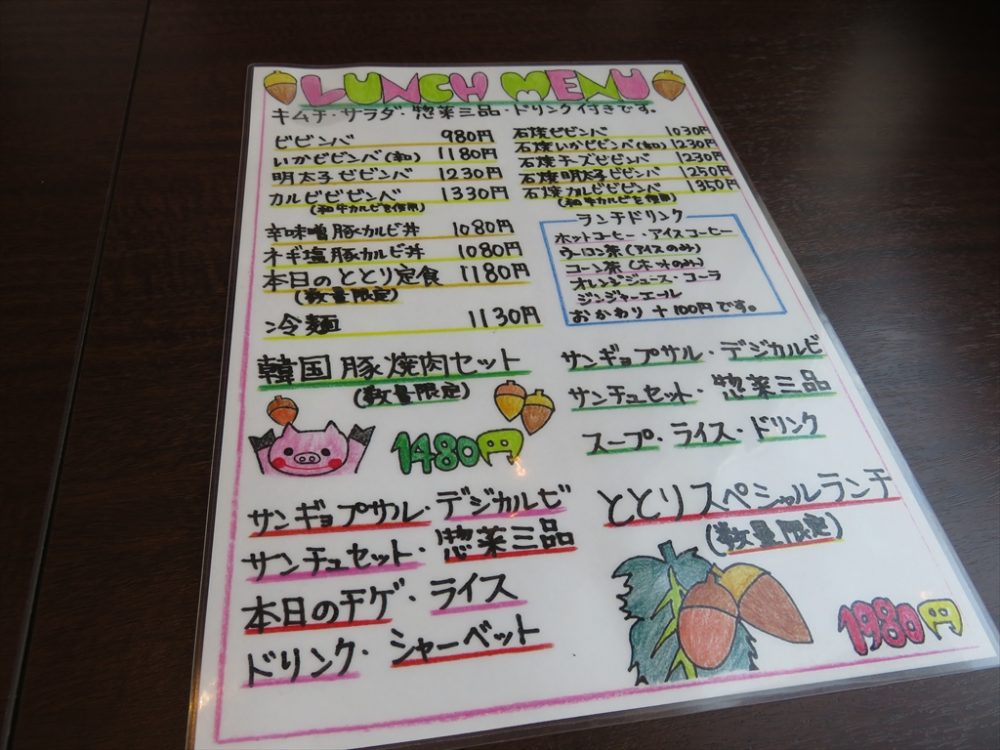 LUNCH MENU
キムチ・サラダ・惣菜三品・ドリンク付きです。
ビビンバ 980円
いかビビンバ(和) 1180円
明太子ビビンバ 1230円
カルビビビンバ 1330円
(和牛カルビを使用)
辛味噌豚カルビ丼 1080円
ネギ塩豚カルビ丼 1080円
本日のととり定食 1180円
(数量限定)
冷麺 1130円
石焼ビビンバ 1030円
石焼いかビビンバ(和) 1230円
石焼チーズビビンバ 1230円
石焼明太子ビビンバ 1250円
石焼カルビビビンバ 1350円
(和牛カルビを使用)
ランチドリンク
ホットコーヒー・アイスコーヒー
ウーロン茶(アイスのみ)
コーン茶(ホットのみ)
オレンジジュース・コーラ
ジンジャーエール
おかわり +100円です。
韓国豚焼肉セット
(数量限定)
1480円
サンギョプサル・デジカルビ
サンチュセット・惣菜三品
スープ・ライス・ドリンク
ととりスペシャルランチ
(数量限定)
1980円
サンギョプサル・デジカルビ
サンチュセット・惣菜三品
本日のチゲ・ライス
ドリンク・シャーベット